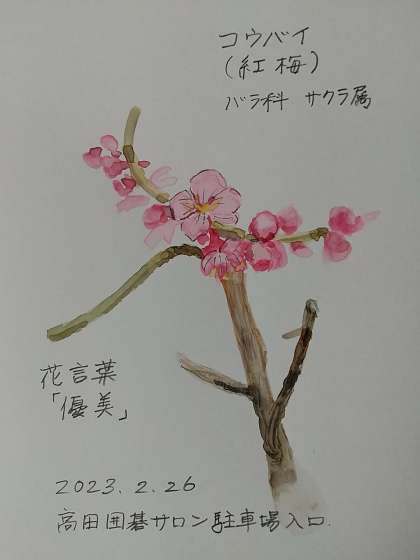 コウバイ
(紅梅)
バラ科 サクラ属
花言葉
「優美」
2023.2.26
高田囲碁サロン駐車場入口.